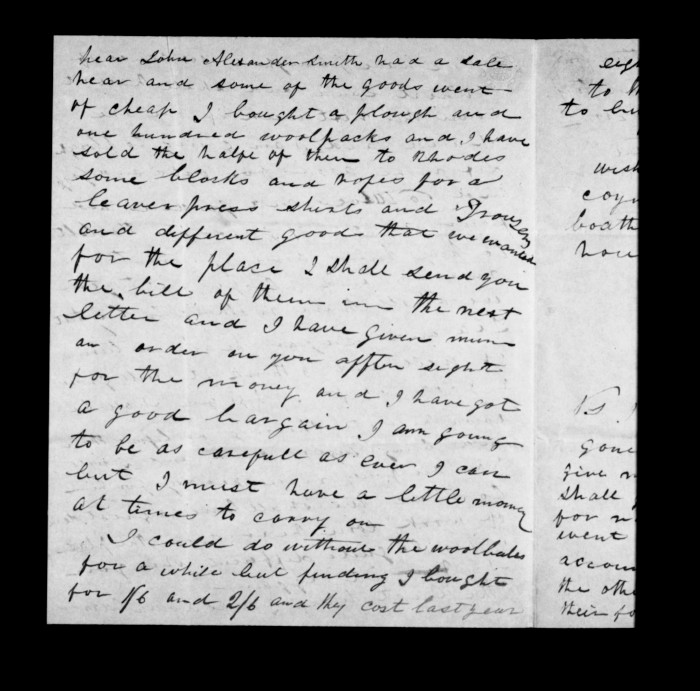 hear John Alexander Smith had a sale
hear and some of the goods went
of cheap I bought a plough and
one hundred woolpacks and I have
sold the halfe of them to Rhodes
some blocks and ropes for a
leaver press shirts and Trousers
and different goods that we wanted
for the place I shall send you
the bill of them in the next
letter and I have given
an order on you affter sight
for the money and I have got
a good bargain I am going
to be as carefull as ever I can
but I must have a little money
at times to carry on
I could do without the woolbales
for a while but finding I bought
for 1/6 and 2/6 and they cost last year
to
to
wish
boath
P.S.
gone
give
shall
for
event
accoun
the othe
their fo